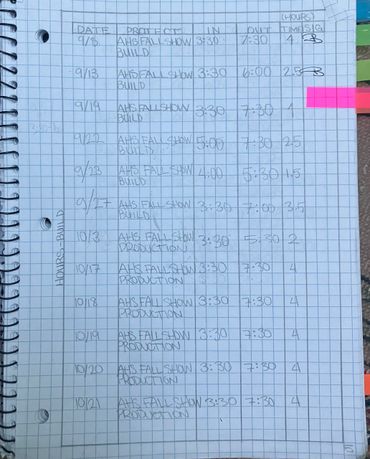 (HOURS)
DATE PROJECT IN OUT TIME SIG
9/8 AHS FALL SHOW 3:30 7:30 4
BUILD
9/13 AHS FALL SHOW 3:30 6:00 2.5
BUILD
9/19 AHS FALL SHOW 3:30 7:30 4
BUILD
9/22 AHS FALL SHOW 5:00 7:30 2.5
BUILD
9/23 AHS FALL SHOW 4:00 5:30 1.5
BUILD
9/27 AHS FALL SHOW 3:30 7:00 3.5
BUILD
10/3 AHS FALL SHOW 3:30 5:30 2
PRODUCTION
10/17 AHS FALL SHOW 3:30 7:30 4
PRODUCTION
10/18 AHS FALL SHOW 3:30 7:30 4
PRODUCTION
10/19 AHS FALL SHOW 3:30 7:30 4
PRODUCTION
10/20 AHS FALL SHOW 3:30 7:30 4
PRODUCTION
10/21 AHS FALL SHOW 3:30 7:30 4
PRODUCTION
HOURS-BUILD